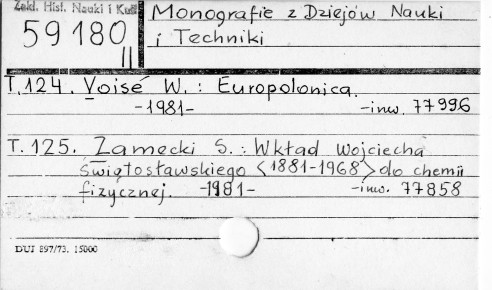 Zakł. Hist. Nauki i
59180
II
Monografie z Dziejów Nauki
i Techniki
T.124. Voisé W. : Europolonica.
-1981- -inw. 77996
T.125. Zamecki S. : Wkład Wojciecha
Świętosławskiego <1881-1968> do chemii
fizycznej. -1981- -inw. 77858
DUJ 897/73. 15000